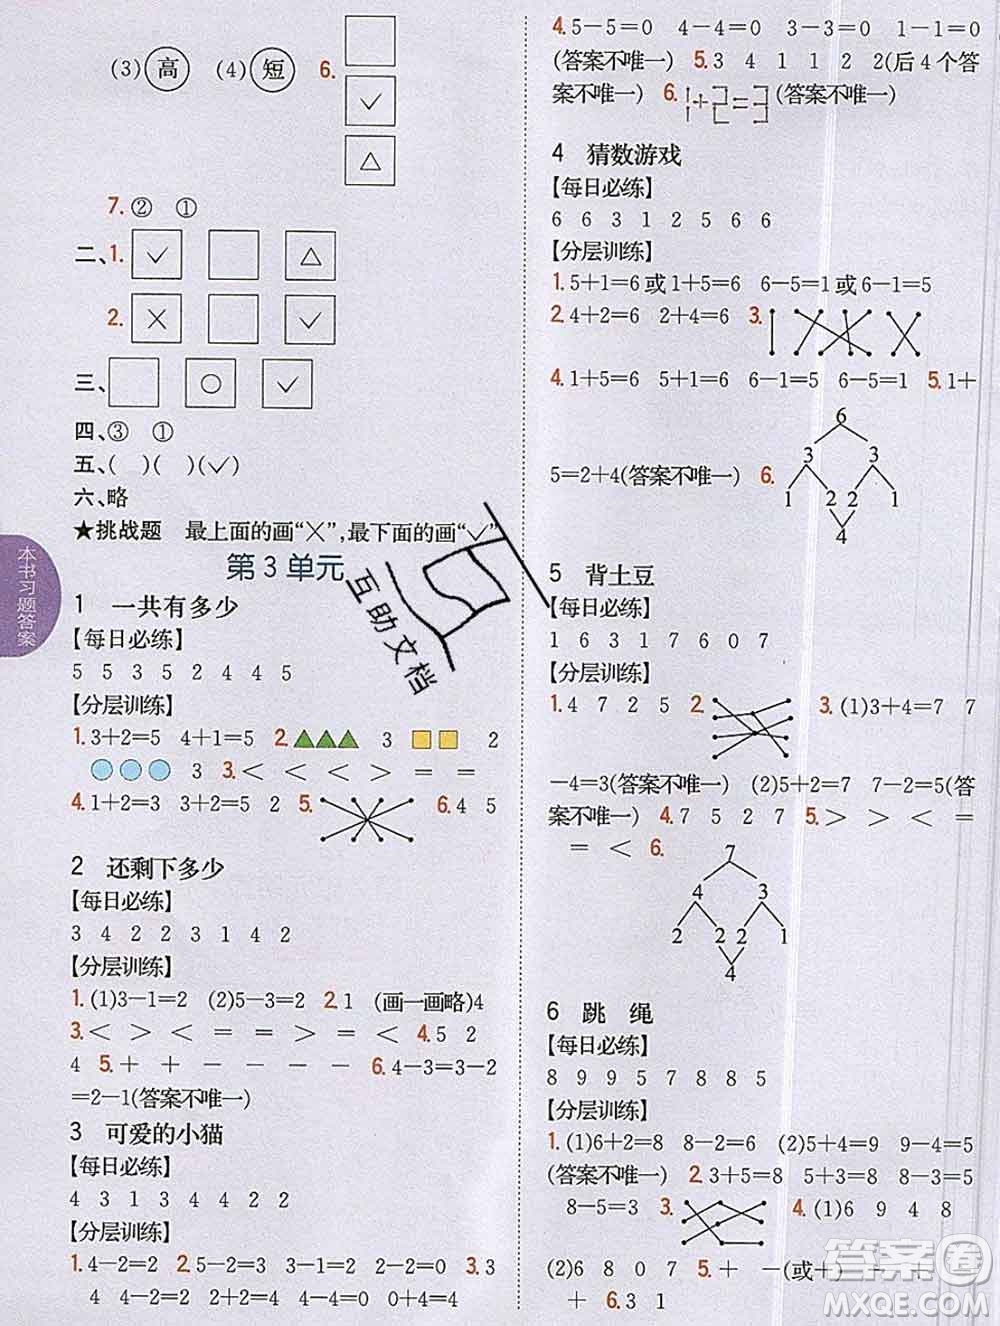 (3)高 (4)短 6.
✓
△
7.② ①
二、1. ✓ △
2. × ✓
三、 ○ ✓
四、③ ①
五、( )( )(✓)
六、略
★挑战题 最上面的画“×”,最下面的画“✓”
第3单元
1 一共有多少
【每日必练】
5 5 3 5 2 4 4 5
【分层训练】
1.3+2=5 4+1=5 2.▲▲▲ 3 □□ 2
○○○ 3 3.< < < < = =
4.1+2=3 3+2=5 2 5. 6.4 5
2 还剩下多少
【每日必练】
3 4 2 2 3 1 4 2
【分层训练】
1.(1)3-1=2 (2)5-3=2 2.1 (画一画略)4
3.< > < = = > < = 4.5 2
4 5.+ + - - - - 6.4-3=3-2
=2-1(答案不唯一)
3 可爱的小猫
【每日必练】
4 3 1 3 4 4 2 4
【分层训练】
1.4-2=2 2.5-2=3 3-1=2 2-2=0 3.3
4 4-2=2 2+2=4 4-4=0 0+4=4
4.5-5=0 4-4=0 3-3=0 1-1=0
(答案不唯一) 5.3 4 1 1 2 2(后4个答
案不唯一) 6.1+2=3(答案不唯一)
4 猜数游戏
【每日必练】
6 6 3 1 2 5 6 6
【分层训练】
1.5+1=6或1+5=6 6-5=1或6-1=5
2.4+2=6 2+4=6 3.
4.1+5=6 5+1=6 6-1=5 6-5=1 5.1+
5=2+4(答案不唯一) 6.
6
3 3
1 2 2 1
4
5 背土豆
【每日必练】
1 6 3 1 7 6 0 7
【分层训练】
1.4 7 2 5 2. 3.(1)3+4=7 7
-4=3(答案不唯一) (2)5+2=7 7-2=5(答
案不唯一) 4.7 5 2 7 5.> > < =
= < 6.
7
4 3
2 2 2 1
4
6 跳 绳
【每日必练】
8 9 9 5 7 8 8 5
【分层训练】
1.(1)6+2=8 8-2=6 (2)5+4=9 9-4=5
(答案不唯一) 2.3+5=8 5+3=8 8-3=5
8-5=3 3. 4.(1)6 9 4 8
(2)6 8 0 7 5.+ -(或+) - +
+ 6.3 1
本书习题答案
互助文档
答案圈
MXQE.COM